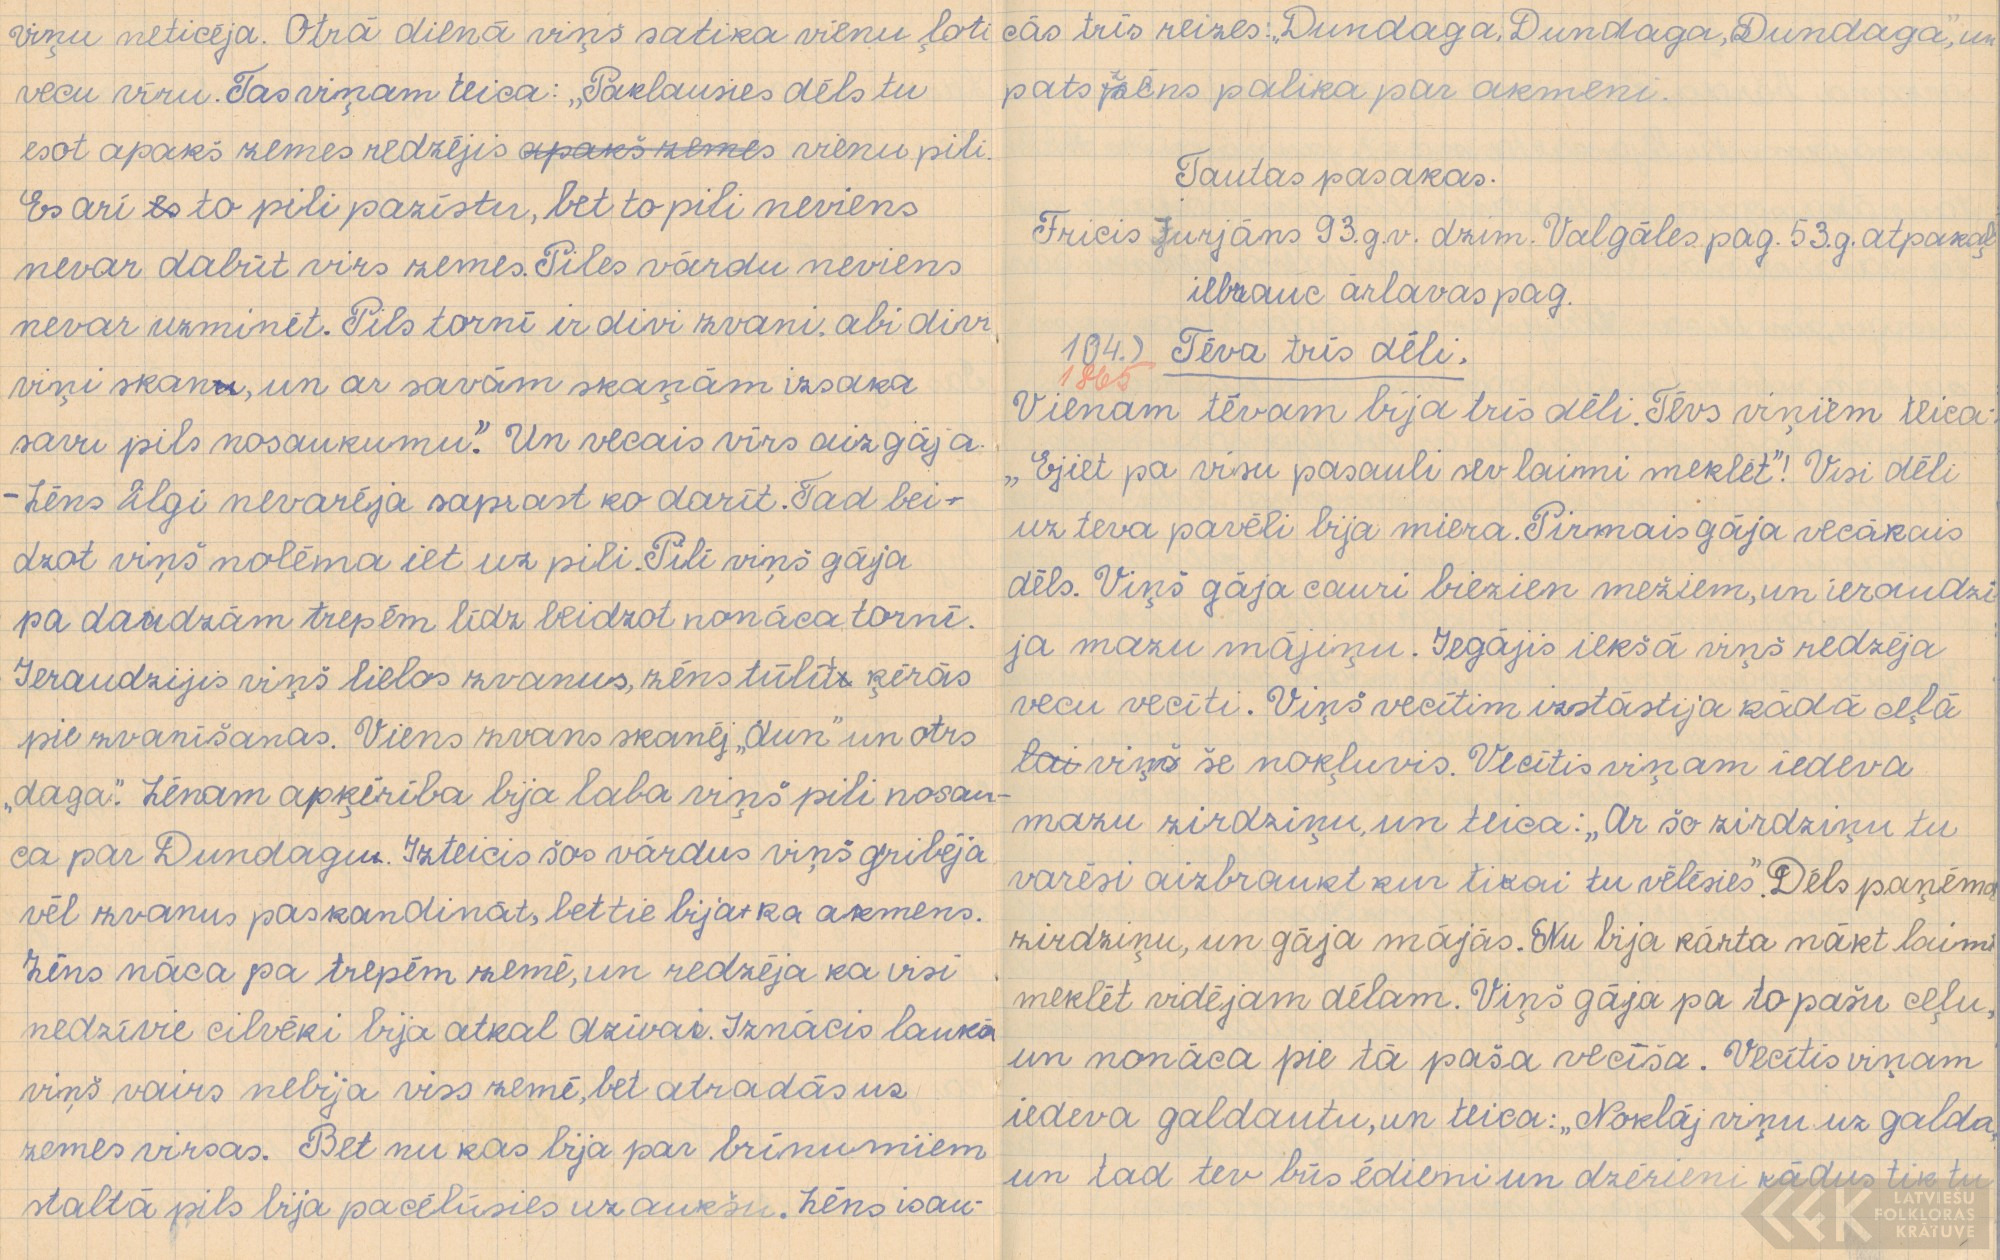 viņu neticēja. Otrā dienā viņš satika vienu ļoti
vecu vīru. Tas viņam teica: „Paklausies dēls tu
esot apakš zemes redzējis apakš zemes vienu pili.
Es arī es to pili pazīstu, bet to pili neviens
nevar dabūt virs zemes. Piles vārdu neviens
nevar uzminēt. Pils tornī ir divi zvani, abi divi
viņi skan, un ar savām skaņām izsaka
savu pils nosaukumu." Un vecais vīrs aizgāja.
- Zēns ilgi nevarēja saprast ko darīt. Tad bei-
dzot viņš nolēma iet uz pili. Pilī viņš gāja
pa daudzām trepēm līdz beidzot nonāca tornī.
Ieraudzijis viņš lielos zvanus, zēns tūlīt ķērās
pie zvanīšanas. Viens zvans skanēj „dun" un otrs
„daga". Zēnam apķērība bija laba viņš pili nosau-
ca par Dundagu. Izteicis šos vārdus viņš gribēja
vēl zvanus paskandināt, bet tie bija ka akmens.
Zēns nāca pa trepēm zemē, un redzēja ka visi
nedzīvie cilvēki bija atkal dzīvai. Iznācis laukā
viņš vairs nebija viss zemē, bet atradās uz
zemes virsas. Bet nu kas bija par brīnumiem
staltā pils bija pacēlusies uz aukšu. Zēns isau-
cās trīs reizes: „Dundaga, Dundaga, Dundaga", un
pats zēns palika par akmeni.
Tautas pasakas.
Fricis Jurjāns 93.g.v. dzim. Valgāles pag. 53.g. atpakaļ
iebrauc ārlavas pag.
104.) Tēva trīs dēli.
1865
Vienam tēvam bija trīs dēli. Tēvs viņiem teica:
„Ejiet pa visu pasauli sev laimi meklēt"! Visi dēli
uz teva pavēli bija miera. Pirmais gāja vecākais
dēls. Viņš gāja cauri biezien mežiem, un ieraudzi
ja mazu mājiņu. Iegājis iekšā viņš redzēja
vecu vecīti. Viņš vecītim izstāstija kādā ceļā
lai viņš še nokļuvis. Vecītis viņam iedeva
mazu zirdziņu, un teica: „Ar šo zirdziņu tu
varēsi aizbraukt kur tikai tu vēlēsies". Dēls paņēma
zirdziņu, un gāja mājās. Nu bija kārta nākt laimi
meklēt vidējam dēlam. Viņš gāja pa to pašu ceļu,
un nonāca pie tā paša vecīša. Vecītis viņam
iedeva galdautu, un teica: „Noklāj viņu uz galda,
un tad tev būs ēdieni un dzērieni kādus tik tu
LATVIEŠU
FOLKLORAS
KRĀTUVE